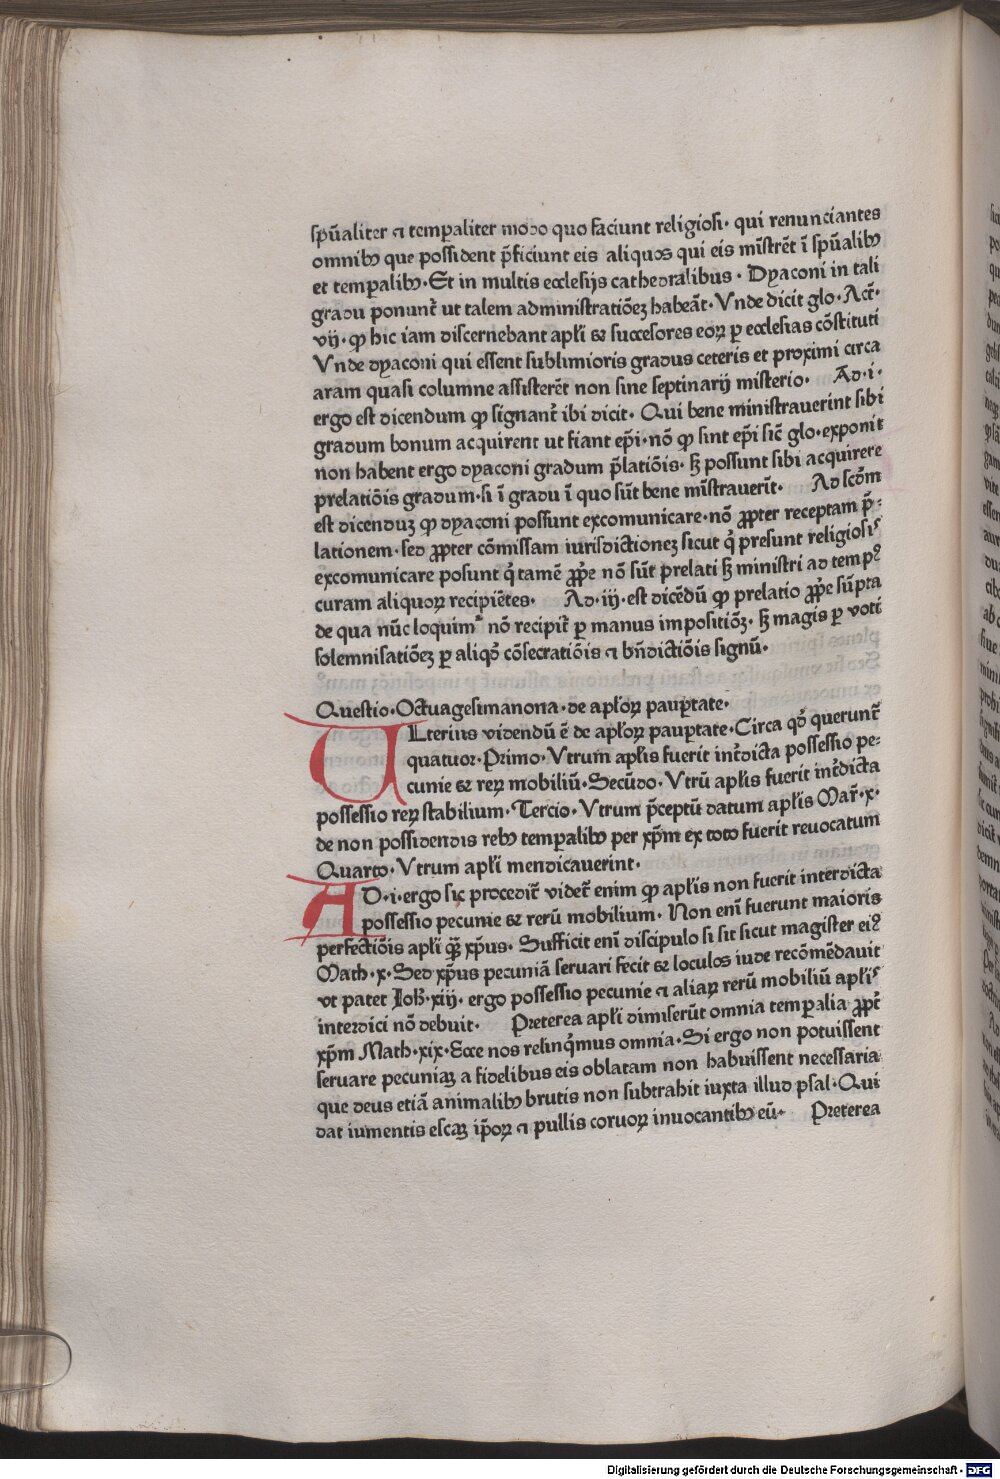 spūaliter ⁊ temꝑaliter modo quo faciunt religiosi· qui renunciantes
omnibꝰ que possident p̄ficiunt eis aliquos qui eis mīstrēt ī spūalibꝰ
et temꝑalibꝰ· Et in multis ecclesijs cathedralibus · Dyaconi in tali
gradu ponunt᷑ ut talem administratiōeȝ habeāt· Vnde dicit glo· Act᷑·
vij· ꝙ hic iam discernebant apłi & successores eoꝝ ꝑ ecclesias cōstituti
Vnde dyaconi qui essent sublimioris gradus ceteris et proximi circa
aram quasi columne assisterēt non sine septinarij misterio· Ad·i·
ergo est dicendum ꝙ signant᷑ ibi dicit· Qui bene ministrauerint sibi
gradum bonum acquirent ut fiant ep̄i·nō ꝙ sint ep̄i sic̄ glo·exponit
non habent ergo dyaconi gradum p̄latiōis· sȝ possunt sibi acquirere
prelatiōis gradum·si ī gradu ī quo sūt bene mīstrauerīt· Ad scd̄m
est dicenduȝ ꝙ dyaconi possunt excomunicare·nō ꝓpter receptam p̄-
lationem·sed ꝓpter cōmissam iurisdictioneȝ sicut q' presunt religiosis
excomunicare posunt q' tamē ꝓpͥe nō sūt prelati sȝ ministri ad temp9
curam aliquoꝝ recipiētes· Ad·iij·est dicēdū ꝙ prelatio ꝓpͥe sūpta
de qua nūc loquim᷑ nō recipit᷑ ꝑ manus impositiōȝ· sȝ magis ꝑ voti
solemnisatiōeȝ ꝑ aliqd' cōsecratiōis ⁊ bn̄dictiōis signū·
Questio·Octuagesimanona·de apłoꝝ pauꝑtate·
ULterius videndū ē de apłoꝝ pauꝑtate·Circa qd' querunt᷑
quatuor·Primo·Vtrum apłis fuerit int᷑dicta possessio pe-
cunie & reꝝ mobiliū·Secūdo·Vtrū apłis fuerit int᷑dicta
possessio reꝝ stabilium·Tercio·Vtrum p̄ceptū datum apłis Mar᷑·x·
de non possidendis rebꝰ temꝑalibꝰ per xp̄m ex toto fuerit reuocatum
Quarto·Vtrum apłi mendicauerint·
AD·i·ergo sic procedit᷑ videt᷑ enim ꝙ apłis non fuerit interdicta
possessio pecunie & rerū mobilium· Non eni fuerunt maioris
perfectiōis apłi qȝ xp̄us· Sufficit eni discipulo si sit sicut magister ei9
Math·x·Sed xp̄us pecuniā seruari fecit & loculos iude recōmēdauit
vt patet Ioh̄·xiij· ergo possessio pecunie ⁊ aliaꝝ rerū mobiliū apłis
interdici nō debuit· Preterea apłi dimiserūt omnia temꝑalia ꝓpt᷑
xp̄m Math·xix·Ecce nos relinq'mus omnia·Si ergo non potuissent
seruare pecuniaȝ a fidelibus eis oblatam non habuissent necessaria
que deus etiā animalibꝰ brutis non subtrahit iuxta illud psal·Qui
dat iumentis escaȝ ip̄oꝝ ⁊ pullis coruoꝝ inuocantibꝰ eū· Preterea
Digitalisierung gefördert durch die Deutsche Forschungsgemeinschaft - DFG